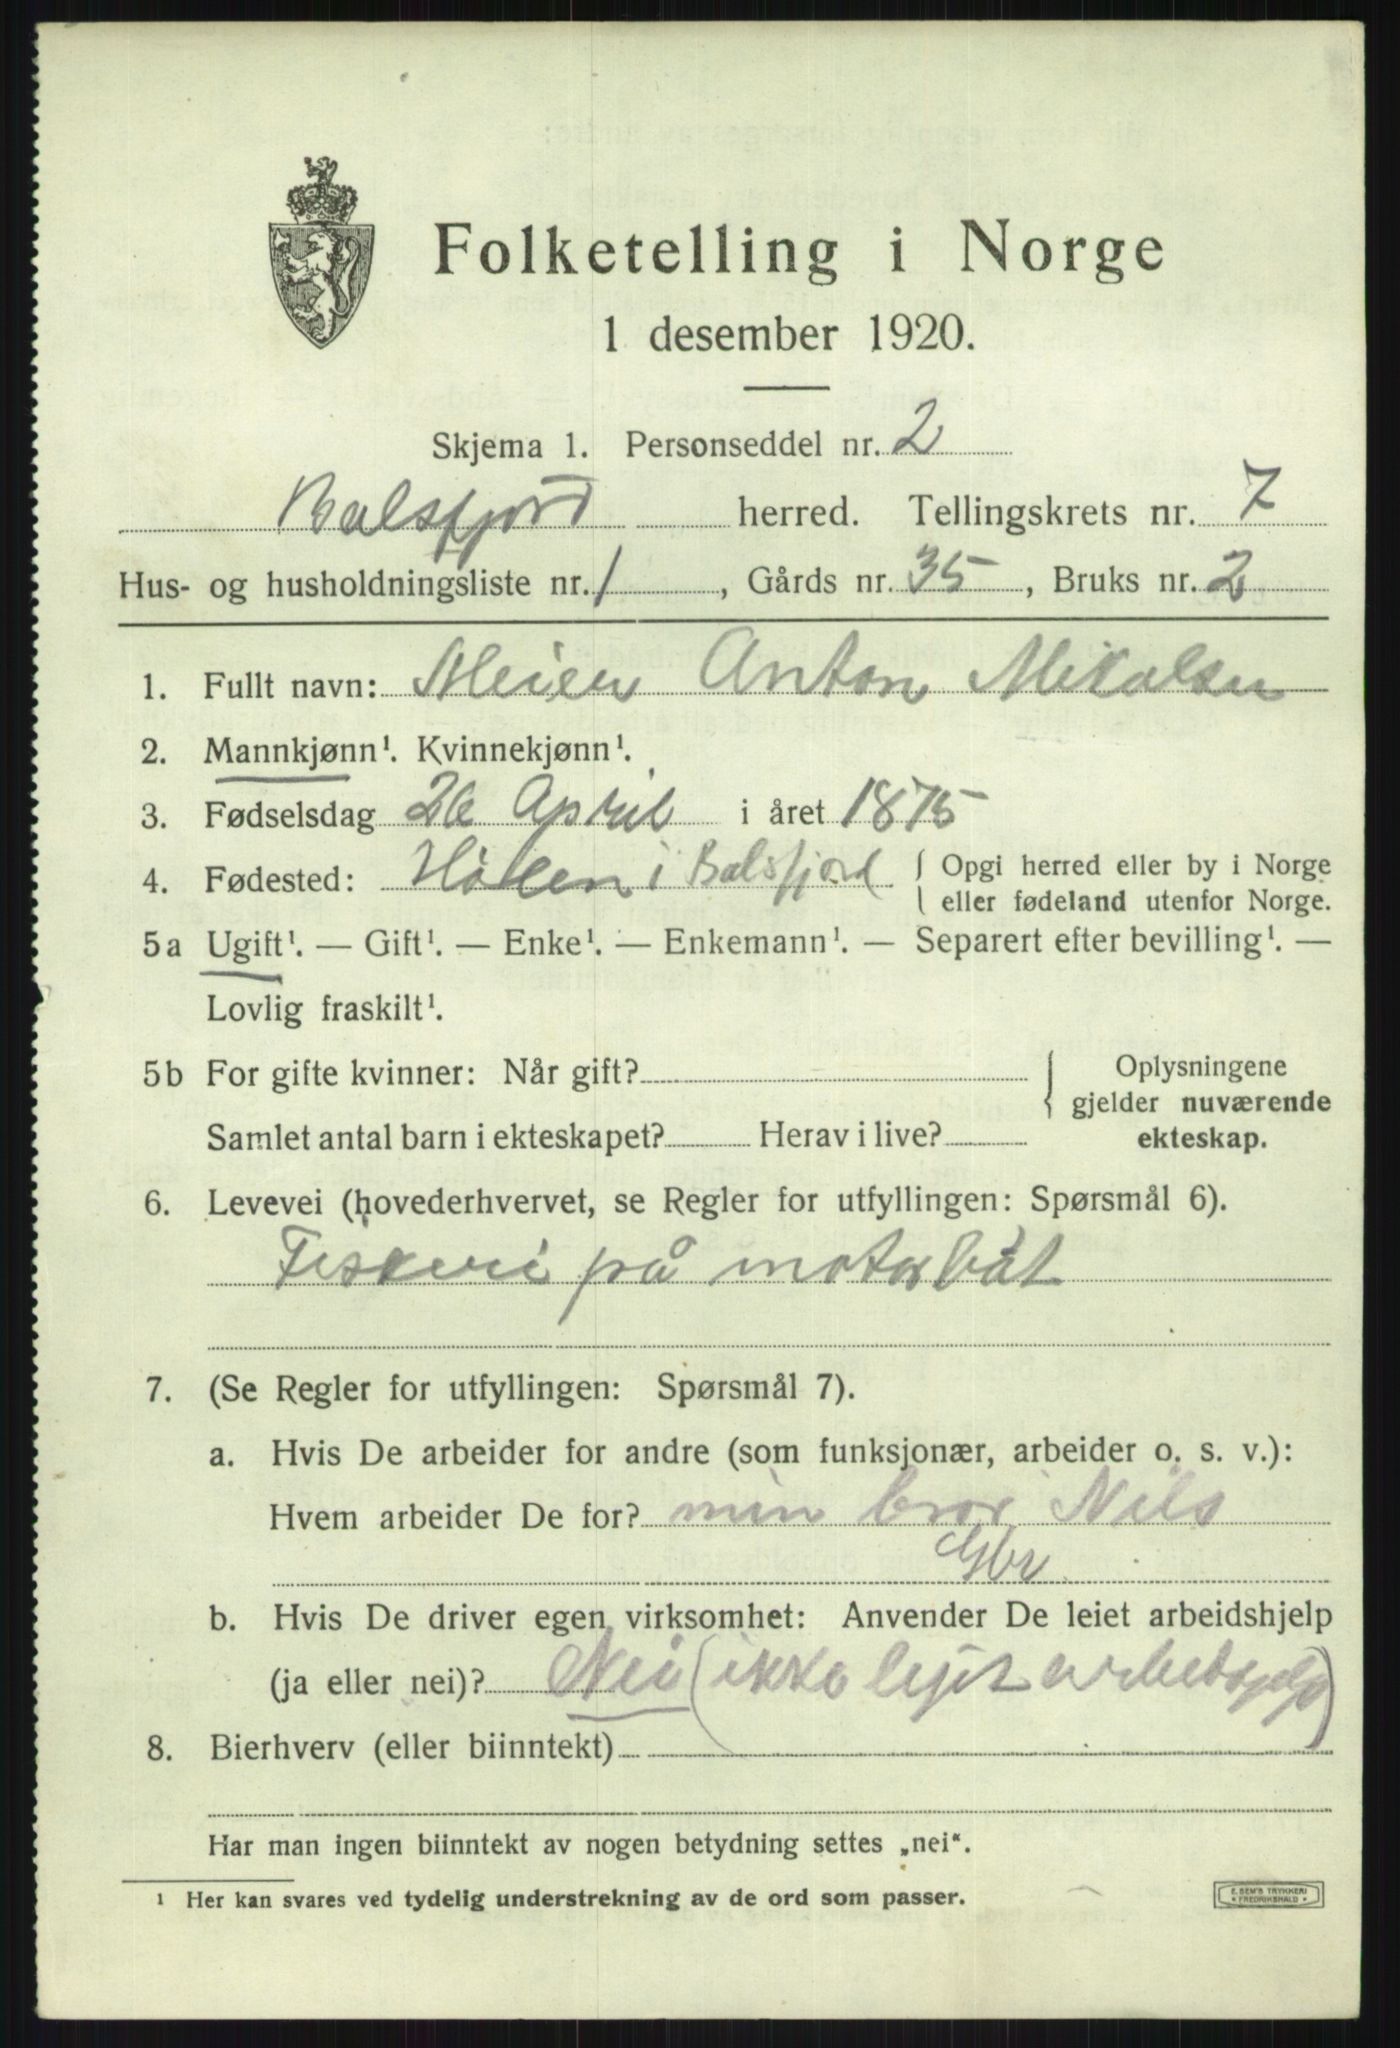 Folketelling i Norge
1 desember 1920.
Skjema 1. Personseddel nr. 2
Balsfjord herred. Tellingskrets nr. 7
Hus- og husholdningsliste nr. 1, Gårds nr. 35, Bruks nr. 2
1. Fullt navn: Meier Anton Mikalsen
2. Mannkjønn¹. Kvinnekjønn¹.
3. Fødselsdag 26 April i året 1875
4. Fødested: i Balsfjord { Opgi herred eller by i Norge
eller fødeland utenfor Norge.
5a Ugift¹. — Gift¹. — Enke¹. — Enkemann¹. — Separert efter bevilling¹. —
Lovlig fraskilt¹.
5b For gifte kvinner: Når gift? } Oplysningene
gjelder nuværende
Samlet antal barn i ekteskapet? Herav i live? ekteskap.
6. Levevei (hovederhvervet, se Regler for utfyllingen: Spørsmål 6).
Fiskeri på motorbåt
7. (Se Regler for utfyllingen: Spørsmål 7).
a. Hvis De arbeider for andre (som funksjonær, arbeider o. s. v.):
Hvem arbeider De for? min bror Nils
Gbr
b. Hvis De driver egen virksomhet: Anvender De leiet arbeidshjelp
(ja eller nei)? Nei (ikke lejet
8. Bierhverv (eller biinntekt)
Har man ingen biinntekt av nogen betydning settes „nei“.
¹ Her kan svares ved tydelig understrekning av de ord som passer.
E. SEM'S TRYKKERI
* FREDRIKSHALD *